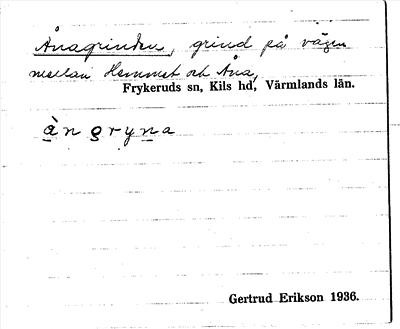 Ånagrinden, grind på vägen
mellan Hemmet och Åna,
Frykeruds sn, Kils hd, Värmlands län.
àngryna
Gertrud Erikson 1936.